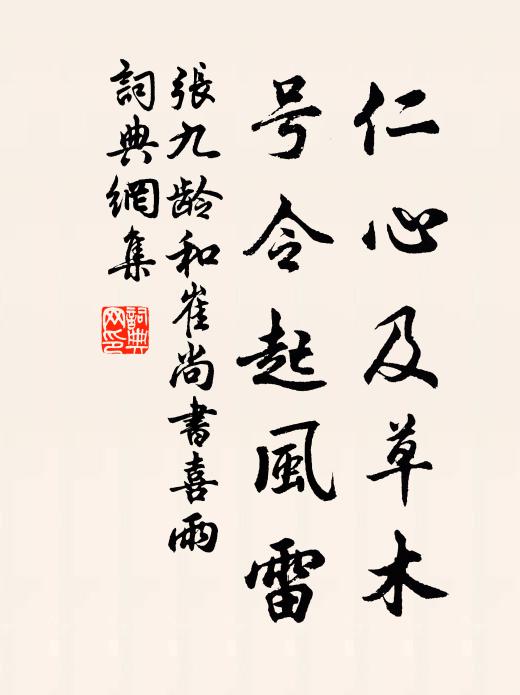 仁心及草木
号令起風雷
張九龄和崔尚書喜雨
詞典網集
詞典网印